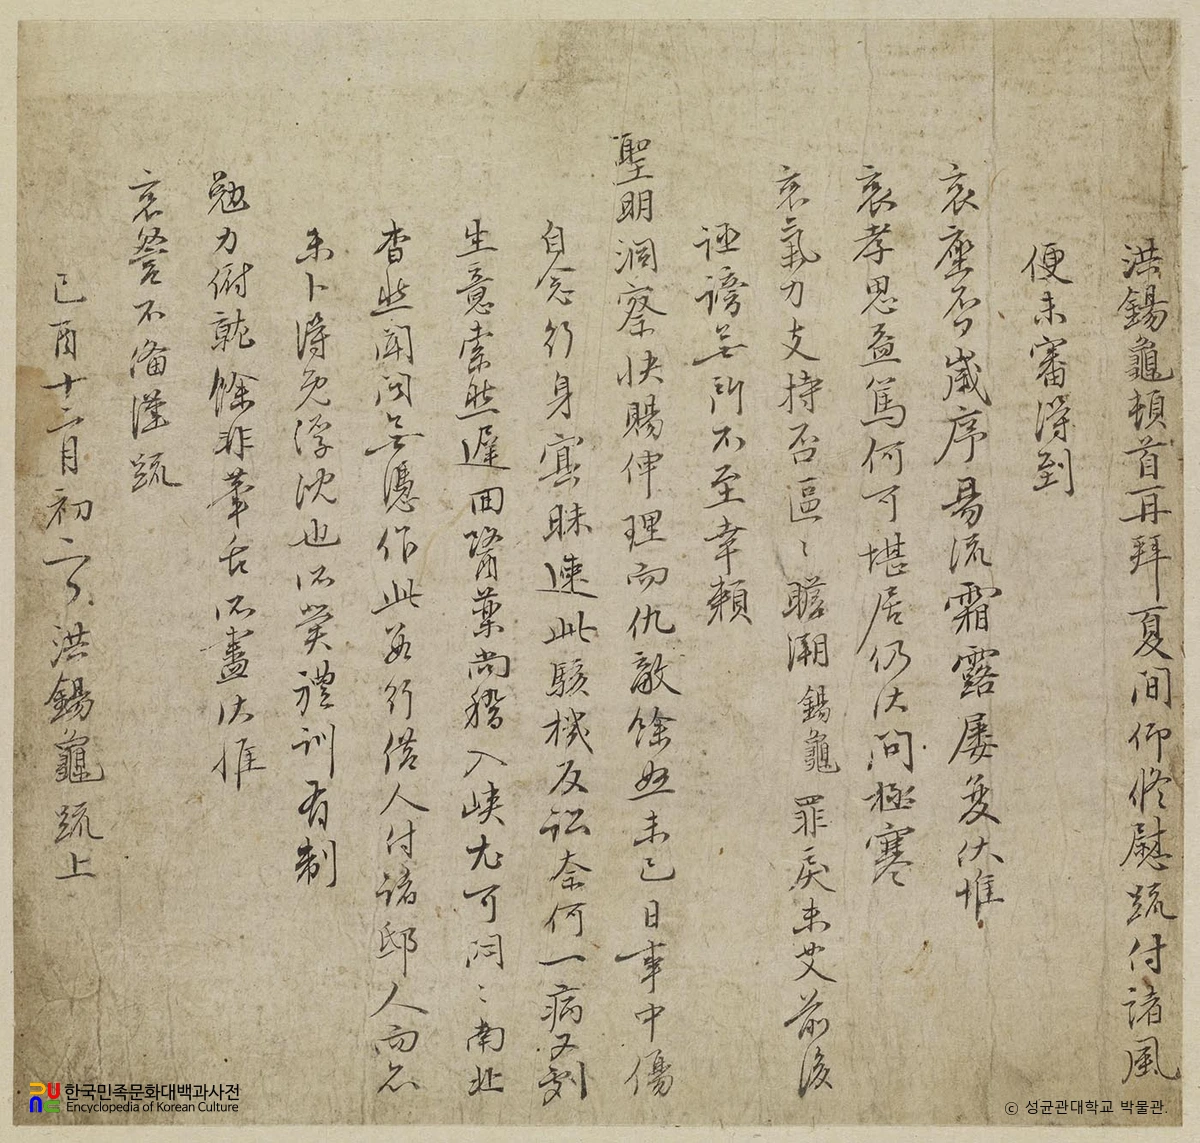 洪錫龜頓首再拜夏間仰修慰疏付諸風
便未審得到
哀座否歲序易流霜露屢變伏惟
哀孝思益篤何可堪居仍伏問極寒
哀氣力支持否區〻瞻溯錫龜罪戾未艾前後
誣謗無所不至幸賴
聖明洞察快賜伸理而仇敵餘怒未已日事中傷
自念行身寡昧速此駭機反訟奈何一病又劇
生意索然遲回醫藥尚稽入峽尤可悶〻南北
杳然聞問無憑作此爲行借人付諸邸人而亦
未卜得免浮沈也不宣禮訓有制
勉力俯就餘非筆舌所盡伏惟
哀詧不備謹疏
己酉十二月初二日洪錫龜疏上
한국민족문화대백과사전
Encyclopedia of Korean Culture
ⓒ 성균관대학교 박물관.